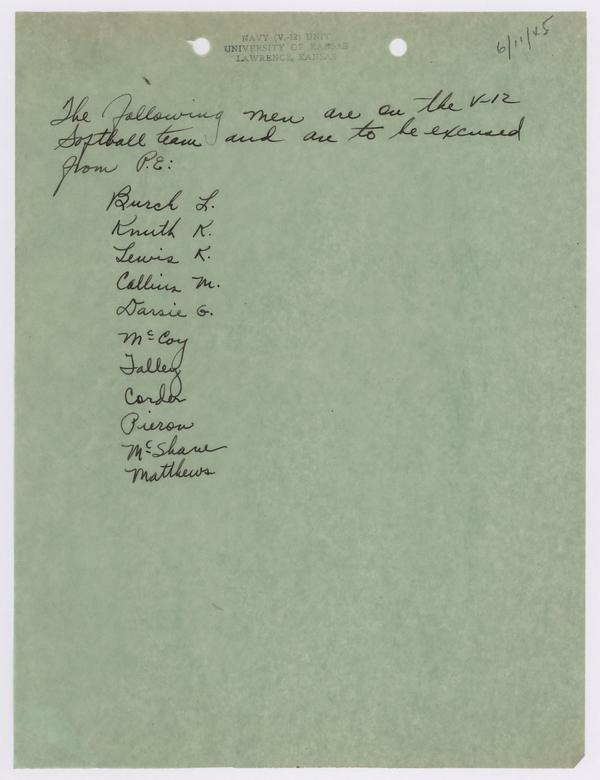 NAVY (V-12) UNIT
UNIVERSITY OF KANSAS
LAWRENCE, KANSAS
6/11/45
The following men are on the V-12
Softball team and are to be excused
from P.E:
Burch L.
Knuth K.
Lewis K.
Collins M.
Darsie G.
McCoy
Talley
Corder
Pieron
McShane
Matthews